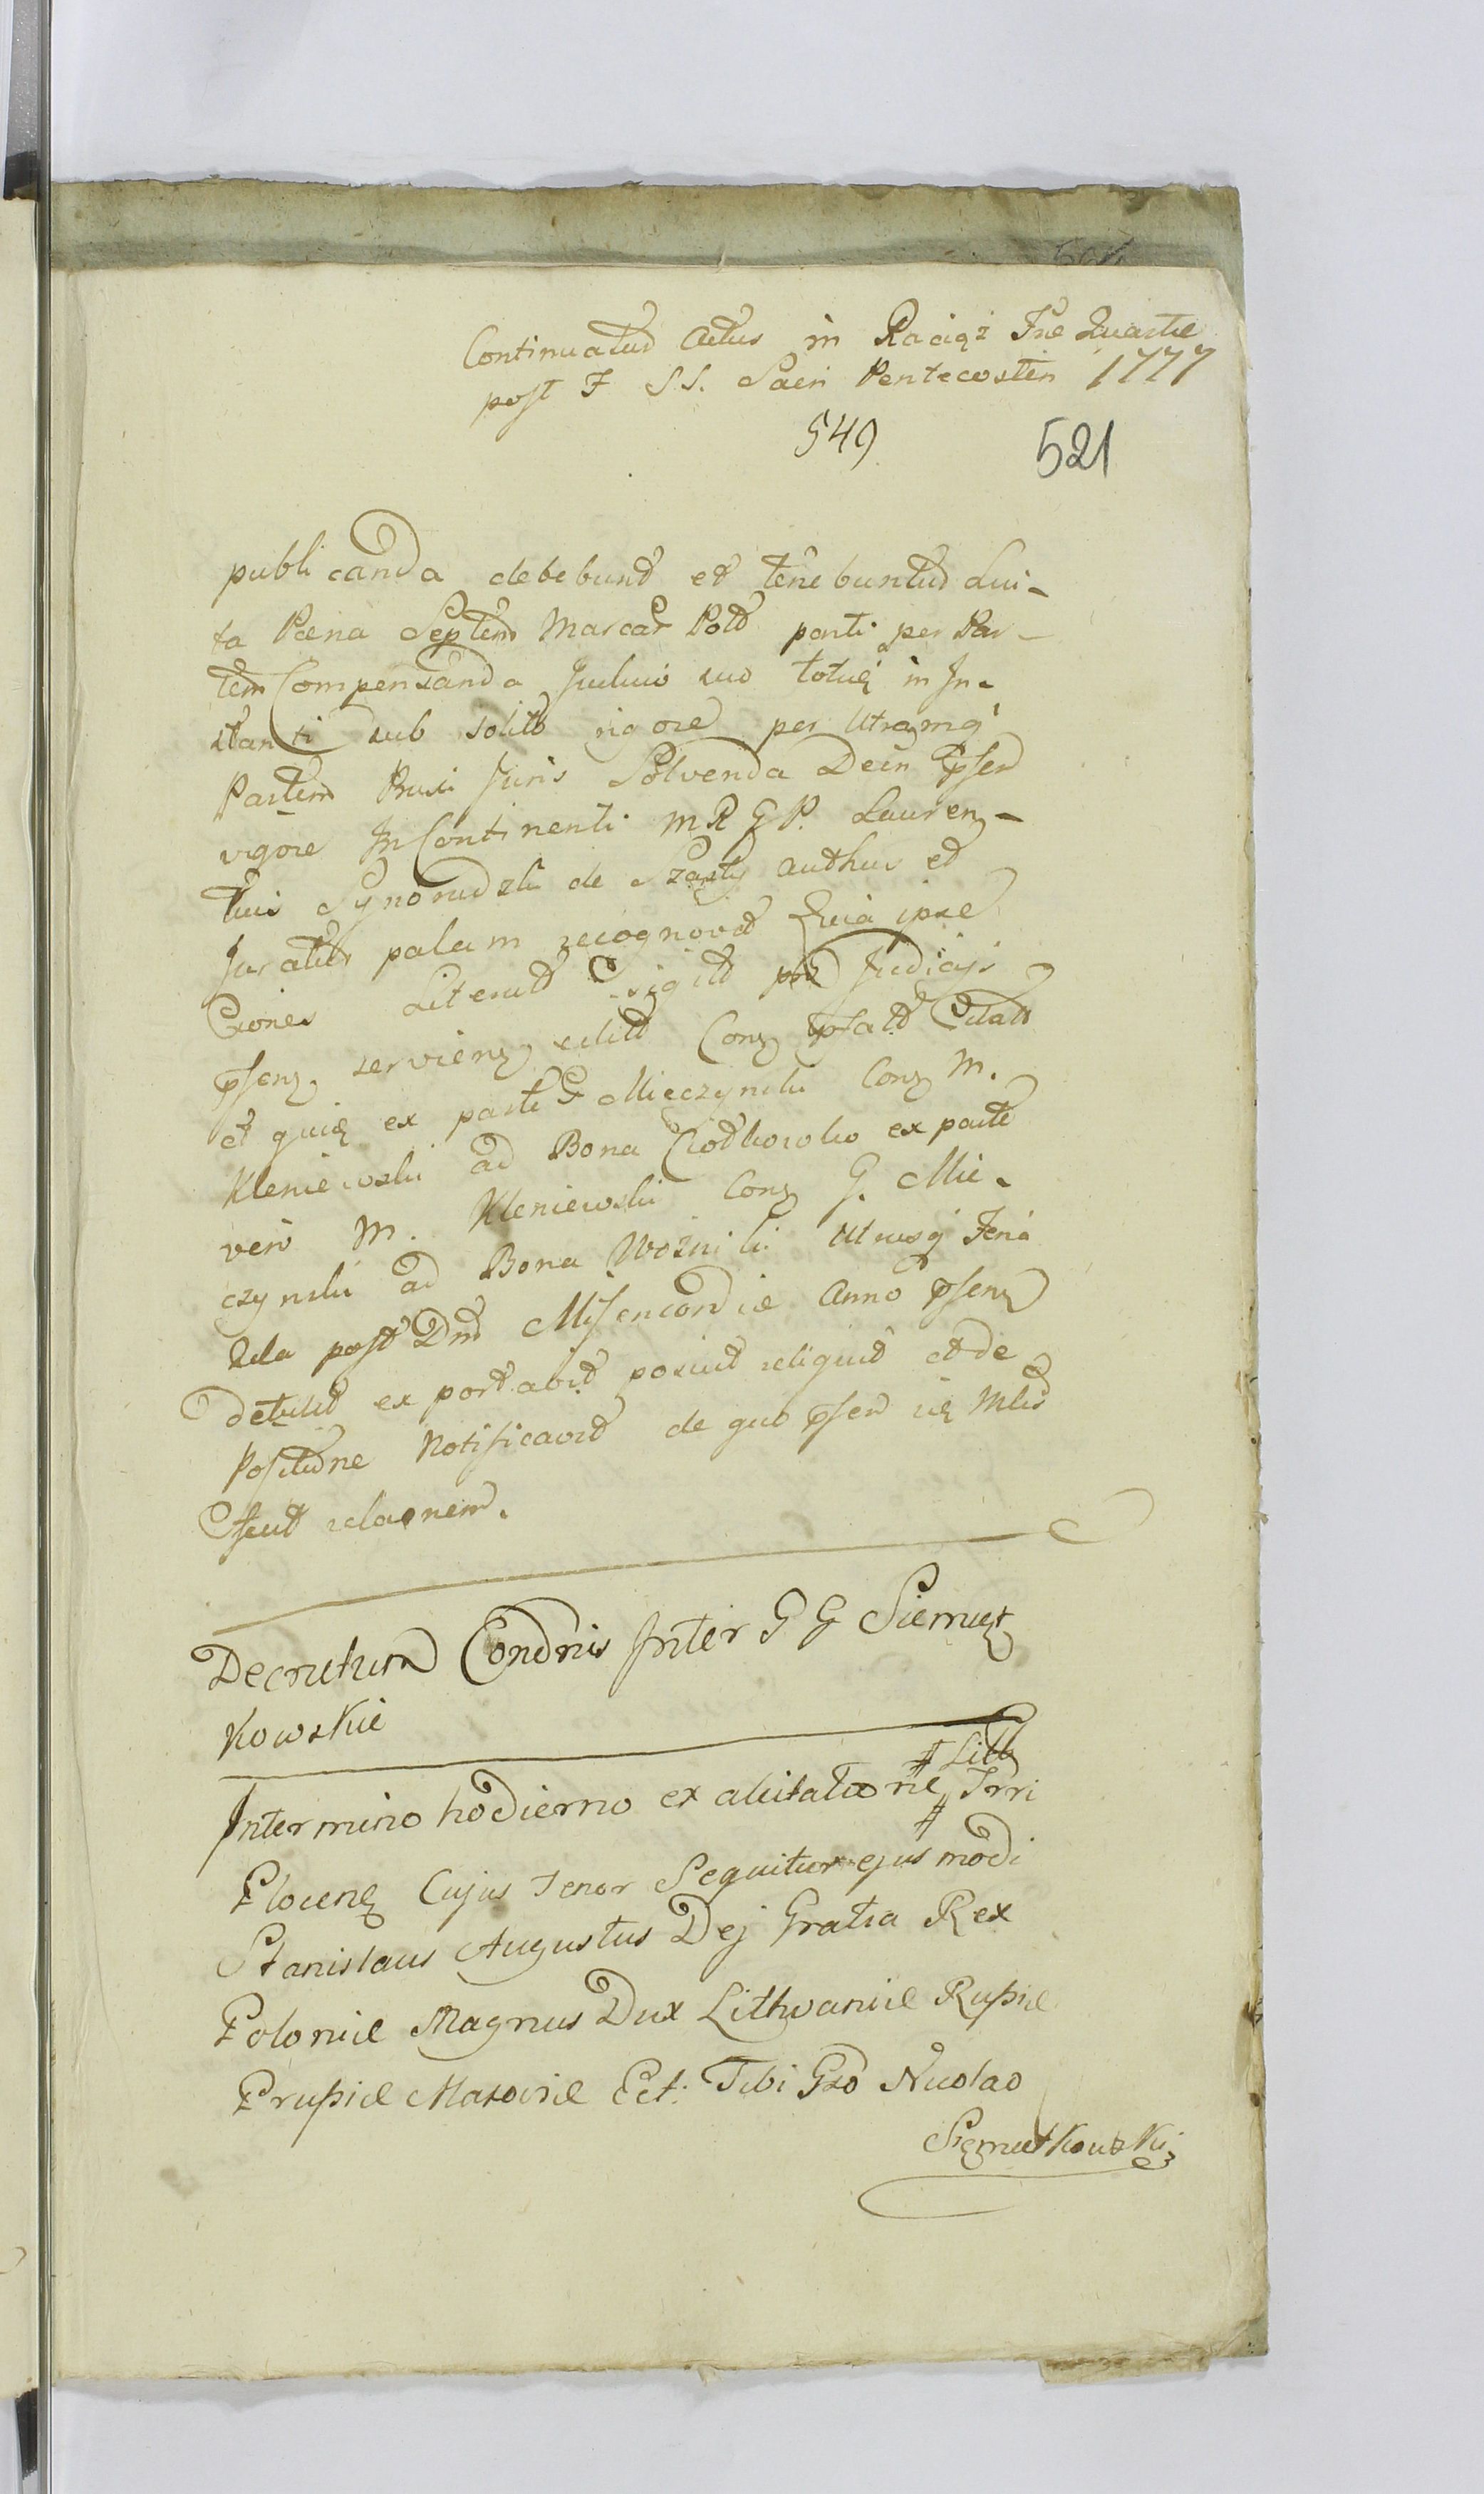 Continuatur Actus in Raciąż Fr̃e Quartæ
post F S.S. Sacri Pentecosten 1777
549
521
publicanda debebunt et tenebuntur Lui-
ta Pæna Septem Marcar Pold parti per Par-
tem Compensanda Judicio vero totię in In-
stanti sub solito rigore per Utramq
Partem Pruxi Juris Solvenda Dein pſen
vigore In Continenti M R G P. Lauren-
tius Synoradzki de Szasty authus et
Juratus palam recognovit Quia ipse
Cõnes Literat sigilt Judicijs
pſenz servienz edit Conz pſatt Citatt
et quię ex parte G Mięczynski Conz M.
Kleniewski ad Bona Ciołkowko ex parte
vero M. Kleniewski Conz G. Mię-
czynski ad Bona Wozniki Utrusq Feria
2da post Dm̃ Misericordiæ Anno pſenz
detulit ex portavit posuit reliquit et de
Positione Notificavit de quo pſen
fecit relaonem.
Decretum Condnis Inter G G Siemiąt
kowskie
Intermino hodierno ex alicitatione # Litt Trri #
Plocenę Cujus tenor Sequitur ejus modi
Stanislaus Augustus Dej Gratia Rex
Poloniæ Magnus Dux Lithvaniæ Rußiæ
Prußiæ Masoviæ Ect: Tibi Gso Nicolao
Siemiątkowski